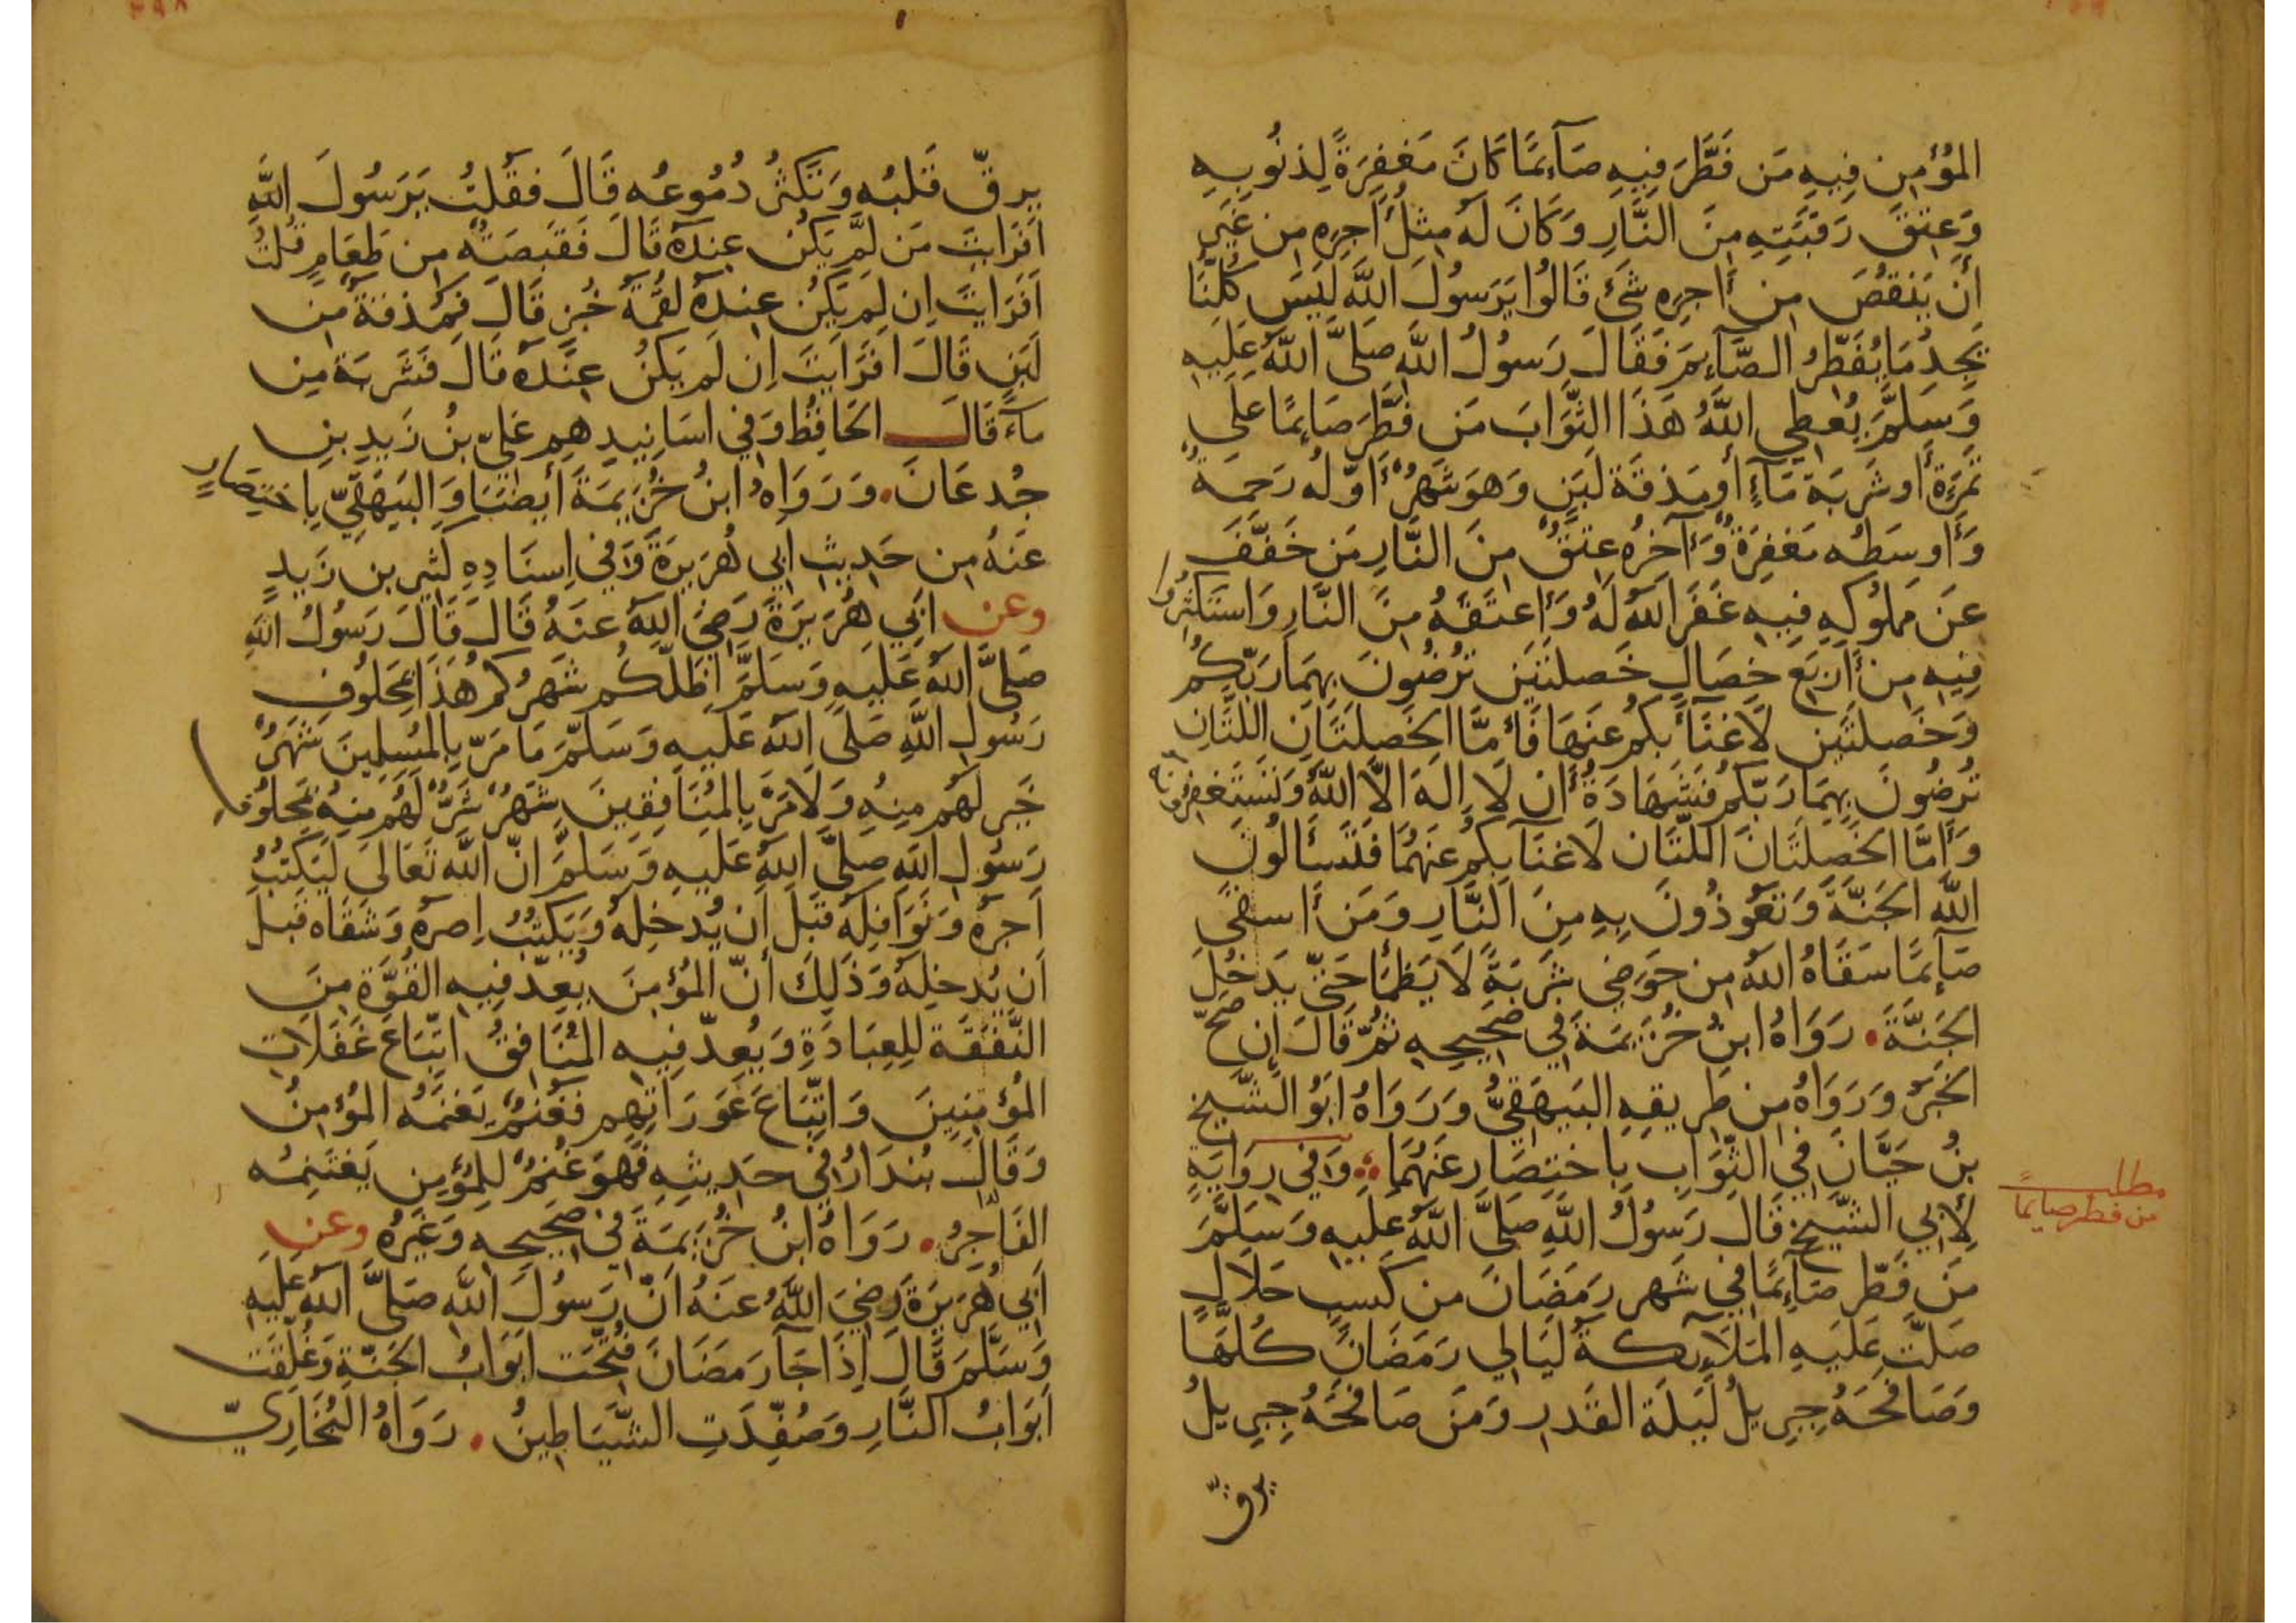 المُؤْمِنِ فِيهِ مَن فَطَّرَ فِيهِ صَآئِمًا كَانَ مَغفِرَةً لِذنُوبِهِ
وَعِتقَ رَقبَتِهِ مِنَ النَّارِ وَكَانَ لَهُ مِثلُ أَجرِهِ مِن غَيرِ
أَن يَنقُصَ مِن أَجرِهِ شَئ قَالُوا يَرَسُولَ اللَّهِ لَيسَ كُلُّنَا
يَجِدُ مَا يُفَطِّرُ الصَّآئِمَ فَقَالَ رَسُولُ اللَّهِ صَلَّى اللَّهُ عَلَيهِ
وَسَلَّمَ يُعطِي اللَّهُ هَذَا الثَّوَابَ مَن فَطَّرَ صَائِمًا عَلَى
تَمرَةٍ أَو شَربَة مَآءٍ أَو مَذقَة لَبَنٍ وَهوَ شَهرٌ أَوّلُه رَحمَةٌ
وَأَوسَطُه مَغفِرَةٌ وَآخِرُه عِتقٌ مِنَ النَّارِ مَن خَفَّفَ
عَن مَملُوكِهِ فِيهِ غَفَرَ اللَّهُ لَهُ وَأَعتَقَهُ مِنَ النَّارِ وَاستَكثِرُوا
فِيهِ مِن أَربَع خِصَالٍ خَصلَتَينِ تُرضُونَ بِهِمَا رَبّكُم
وَخَصلَتَينِ لَا غنَآءَ بِكُم عَنهَا فَأَمَّا الخَصلَتَانِ اللَّتَانِ
تُرضُونَ بِهِمَا رَبّكُم فَشَهَادَةُ أَن لَا إلَهَ الَّا اللَّهُ وَتَستَغفِرُونَه
وَأَمَّا الخَصلَتَانِ اللَّتَان لَا غنَآ بِكُم عَنهُمَا فَتَسئَالُونَ
اللَّه الجَنَّةَ وَتَعُوذُونَ بِهِ مِنَ النَّارِ وَمَن أَسقَى
صَآئِمًا سَقَاهُ اللَّهُ مِن حَوضِي شَربَةً لَا يَظمَأ حَتَّى يَدخُلَ
الجَنَّةَ. رَوَاهُ ابنُ خُزَيمَةَ فِي صَحِيحِهِ ثُمّ قَالَ إن صَحّ
الخَبَرُ وَرَوَاهُ مِن طَرِيقِهِ البَيهَقِيُّ وَرَوَاهُ أَبُو الشَّيخِ
بنُ حَيَّانَ فِي الثّوَابِ بِاختِصَارٍ عَنهُمَا وَفي رِوَايَةٍ
لِأَبِي الشَّيخِ قَالَ رَسُولُ اللَّهِ صَلَّى اللَّهُ عَلَيهِ وَسَلَّمَ
مَن فَطَّر صَآئِمًا فِي شَهرِ رَمَضَانَ مِن كَسبٍ حَلَالٍ
صَلَّت عَلَيهِ المَلَآئِكَةُ لَيَالِي رَمَضَانَ كُلّهَا
وَصَافَحَهُ جِبرِيلُ لَيلَةَ القَدرِ وَمَن صَافَحَهُ جِبرِيلُ
يرقّ
مطلب
من فطر صايمًا
يرِقّ قَلبُه وَتَكثُرُ دُمُوعُه قَالَ فقُلتُ يَرَسُولَ اللَّهِ
أَفَرَايتَ مَن لَم يَكُن عِندَهُ قَالَ فَقَبصَةٌ مِن طَعَامٍ قُلتُ
أَفَرَايتَ إن لَم يَكُن عِندَهُ لُقمَةُ خُبزٍ قَالَ فَمَذقَةٌ مِن
لَبَنٍ قَالَ أَفَرَايتَ إن لَم يَكُن عِندَهُ قَالَ فَشَربَة مِن
مآءٍ قَالَ الحَافِظُ وَفي أَسَانِيدِهِم عَلِيّ بنُ زَيدِ بنِ
جُدعَانَ. وَرَوَاهُ ابنُ خُزَيمَةَ أَيضًا وَالبَيهَقِيّ بِاختِصَارٍ
عَنهُ مِن حَدِيثِ أَبِي هُرَيرَةَ وَفي إِسنَادِهِ كَثِير بن زَيدٍ
وعن أَبِي هُرَيرَةَ رَضِيَ اللَّهُ عَنهُ قَالَ قَالَ رَسُولُ اللَّهِ
صَلَّى اللَّهُ عَلَيهِ وَسَلَّمَ أَظَلَّكُم شَهرُكُم هَذَا بِمَحلُوفِ
رَسُولِ اللَّهِ صَلَّى اللَّهُ عَلَيهِ وَسَلَّمَ مَا مَرّ بِالمُسلِمِينَ شَهرٌ
خَيرٌ لَهُم مِنهُ وَلَا مَرَّ بِالمُنَافِقِينَ شَهرٌ شَرٌّ لَهُم مِنهُ بِمَحلُوفِ
رَسُولِ اللَّهِ صَلَّى اللَّهُ عَلَيهِ وَسَلَّمَ انّ اللَّه تَعَالَى لَيَكتُبُ
أَجرَهُ وَنَوَافِلَهُ قَبلَ أَن يُدخِلَهُ وَيَكتُبُ إِصرَهُ وَشَقَاه قَبلَ
أَن يُدخِلَهُ وَذَلِكَ أَنّ المُؤمِنَ يُعِدّ فِيهِ القُوَّةَ مِنَ
النَّفَقَة لِلعِبَادَةِ وَيُعِدّ فِيهِ المُنَافِقُ اتِّبَاعَ غَفَلَاتِ
المُؤمِنِينَ وَاتِّبَاعَ عَورَاتِهِم فَغُنمٌ يَغنَمُه المُؤمِنُ
وَقَالَ بُندَارُ فِي حَدِيثِهِ فَهوَ غُنمٌ لِلمُؤمِنِ يَغتَنِمُه
الفَاجِرُ. رَوَاهُ ابنُ خُزَيمَةَ فِي صَحِيحِهِ وَغَيرُهُ وعن
أَبِي هُرَيرَةَ رَضِيَ اللَّهُ عَنهُ أَنّ رَسُولَ اللَّهِ صَلَّى اللَّهُ عَلَيهِ
وَسَلَّمَ قَالَ إِذَا جَآ رَمَضَانَ فُتِّحَت أَبوَابُ الجَنّةِ وَغُلِّقَت
أَبوَابُ النَّارِ وَصُفِّدَتِ الشَّيَاطِينُ. رَوَاهُ البُخَارِيّ